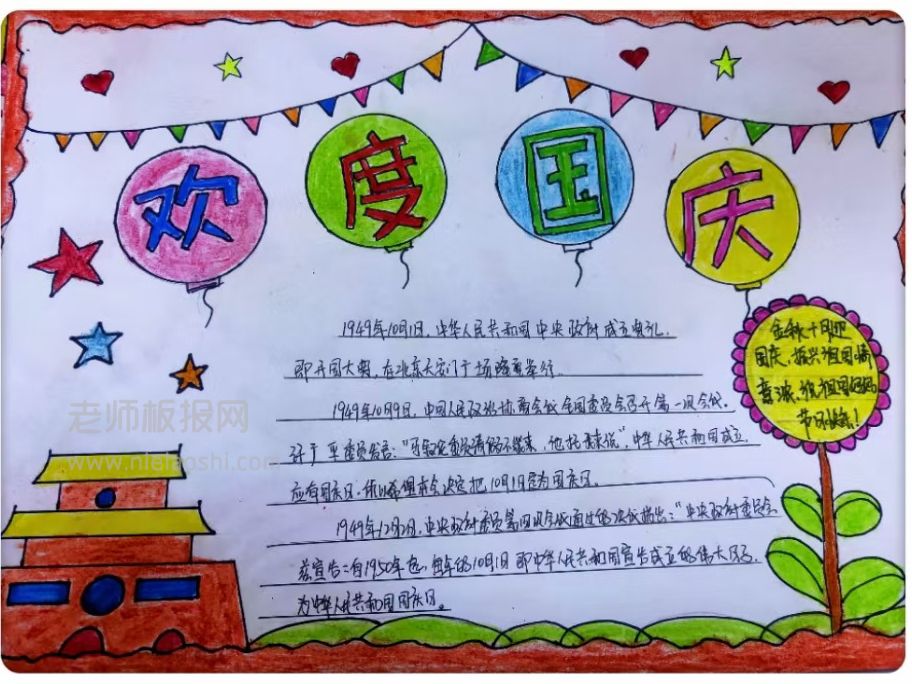 欢度国庆
1949年10月1日,中华人民共和国中央政府成立典礼,
即开国大典,在北京天安门广场隆重举行。
1949年10月9日,中国人民政治协商会议全国委员会召开第一次会议。
许广平委员发言:“马叙伦委员请假不能来,他托我来说”,中华人民共和国成立,
应有国庆日,所以希望本会决定把10月1日定为国庆日。
1949年12月2日,中央政府委员第四次会议通过的决议指出:“中央政府委员会
兹宣告:自1950年起,每年的10月1日即中华人民共和国宣告成立的伟大日子,
为中华人民共和国国庆日。
金秋十月迎
国庆,振兴祖国情
意浓,祝祖国妈妈
节日快乐!
老师板报网